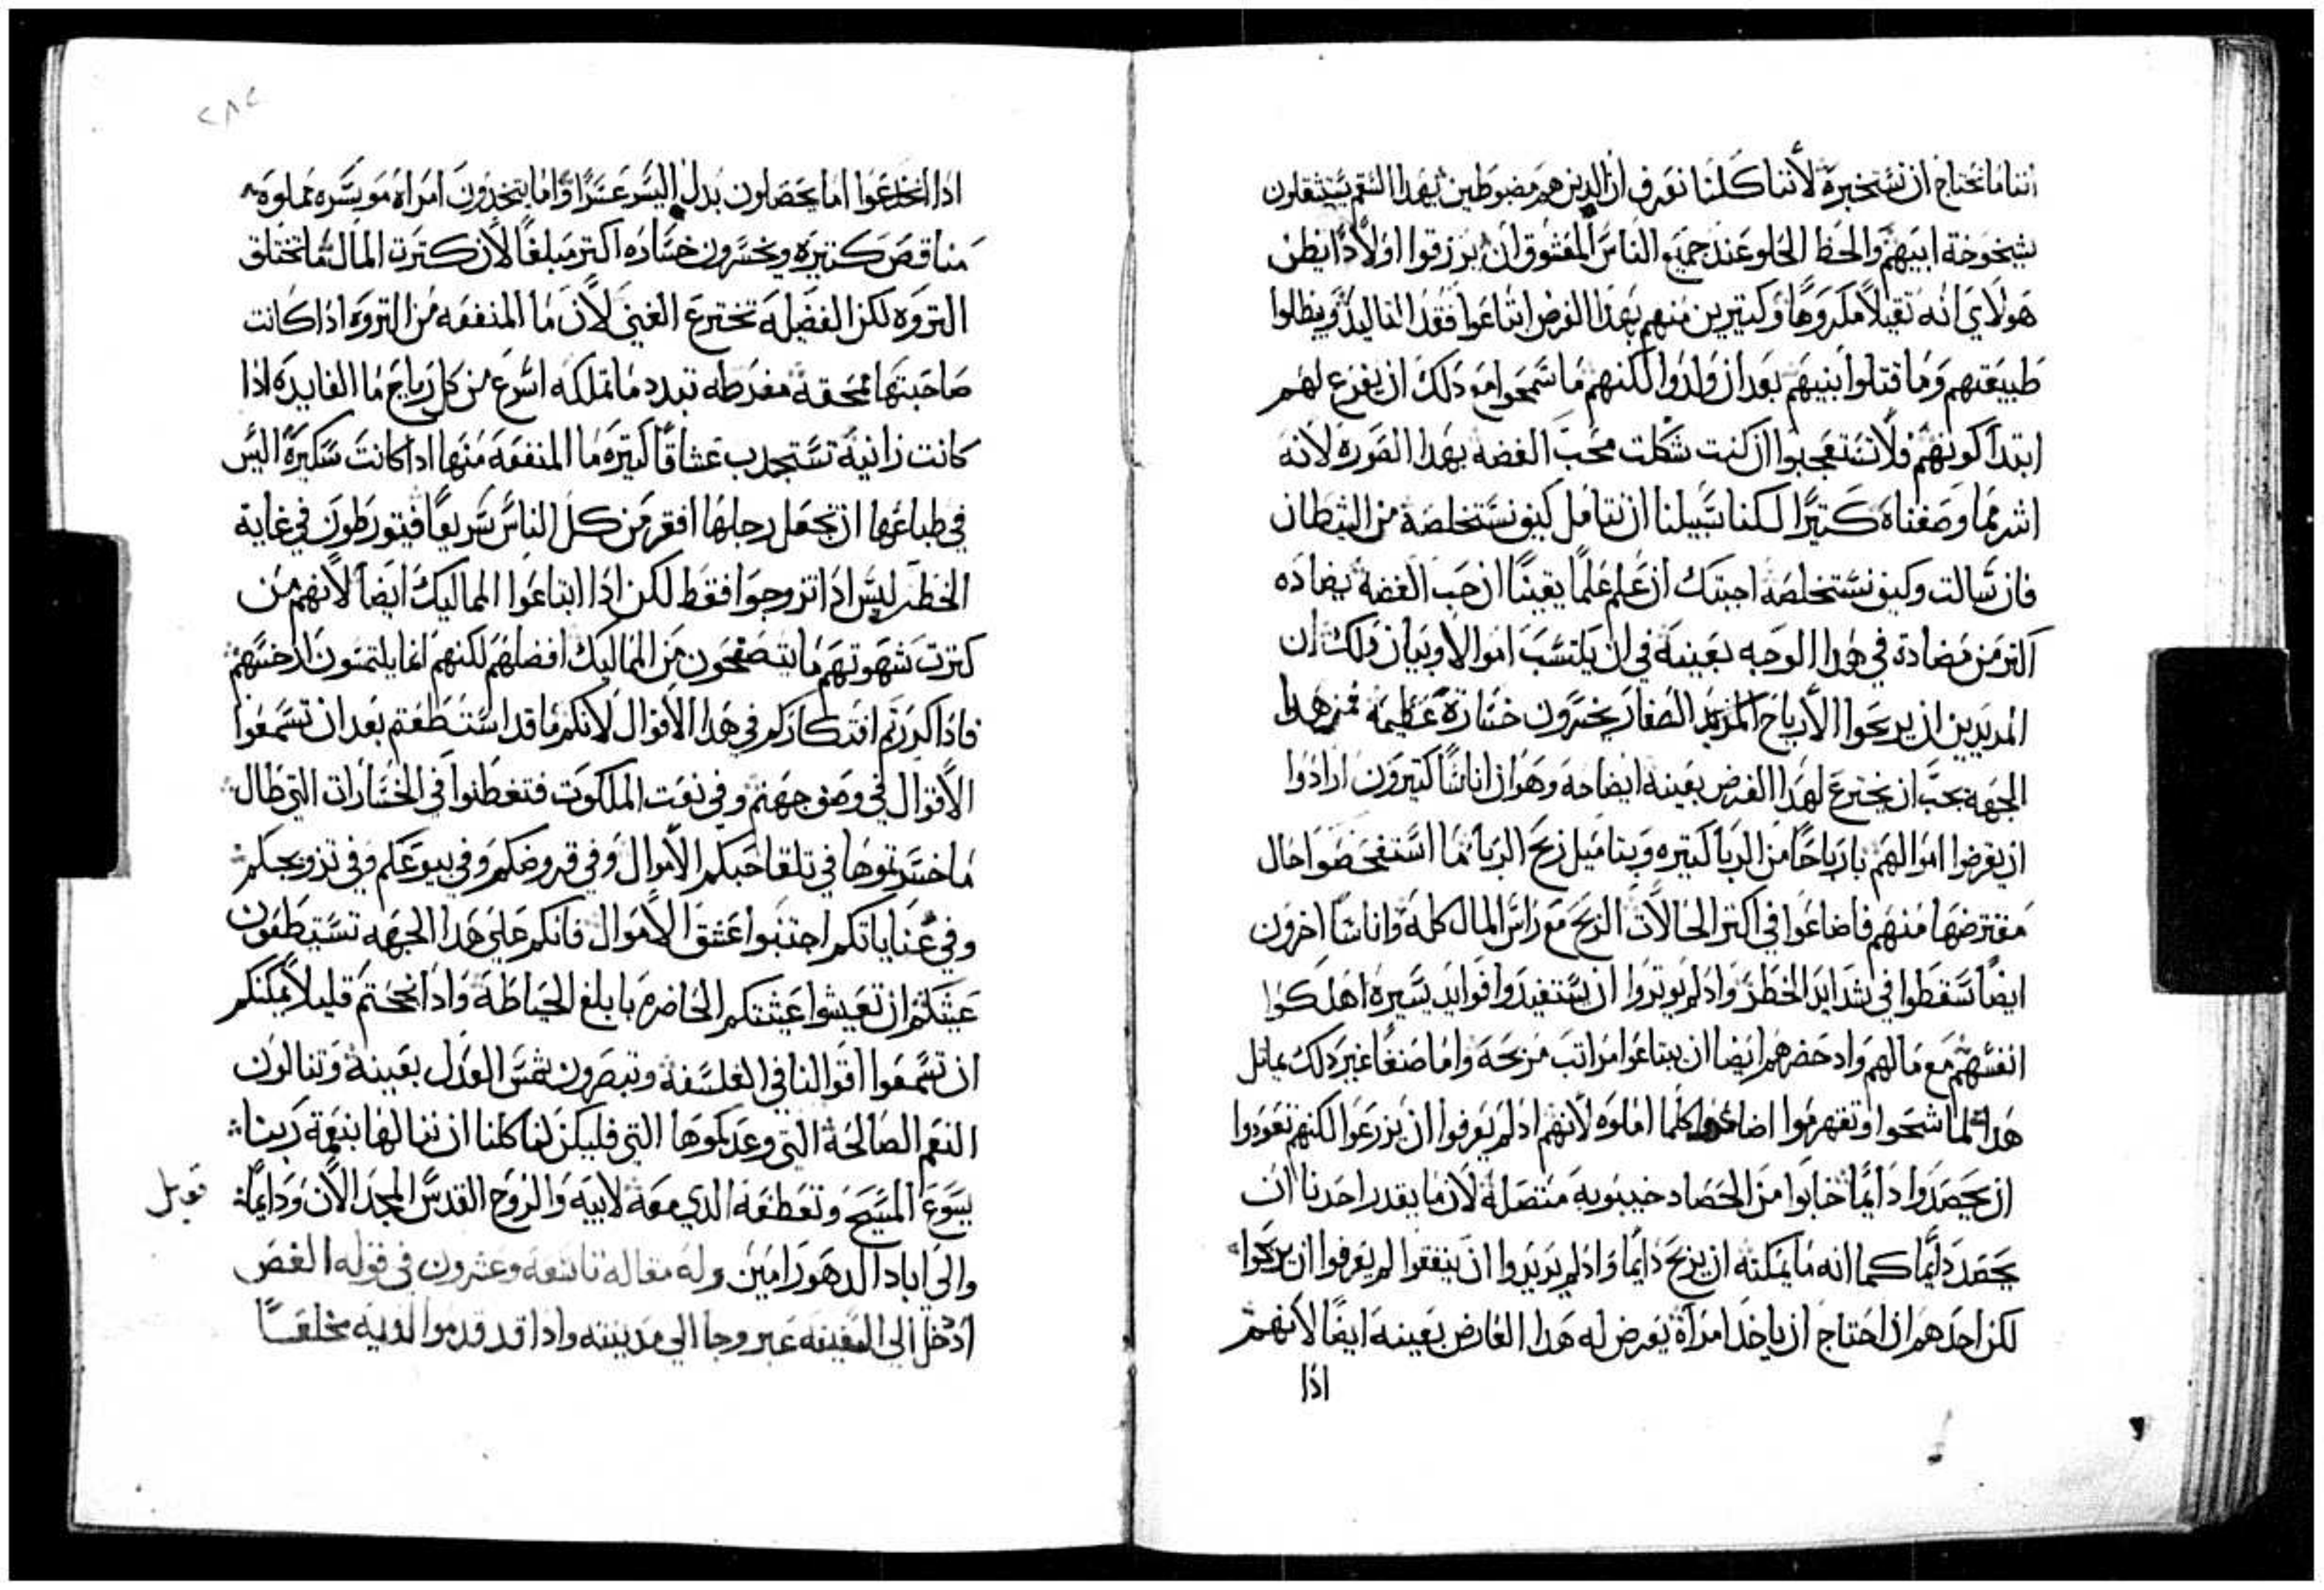 اننا ما نحتاج ان نستخبره لأننا كلنا نعرف ان الدين هم مضبوطين بهدا السقم يستثقلون
شيخوخة ابيهم والحظ الحلو عند جميع الناس المعشوق ان يرزقوا اولادًا يظن
هولاي انه ثقيلاً مكروهًا وكتيرين منهم بهدا الغرض ابتاعوا فقد التاليد وبطلوا
طبيعتهم وما قتلوا بنيهم بعد ان ولدوا لكنهم ما سمحوا مع دلك ان يفرع لهم
ابتدا كونهم فلا تتعجبوا ان كنت شكلت محب الفضه بهدا الصوره لانه
اشر مما وصفناه كتيرًا لكننا سبيلنا ان نتامل كيف نستخلصه من الشيطان
فان سالت وكيف نستخلصه اجبتك ان علم علمًا يقينًا ان حب الفضة يضاده
اكتر من مضادة في هدا الوجه بعينه في ان يكتسب اموالاً وبيان دلك ان
المريدين ان يربحوا الأرباح الصغار يخسرون خسارة عظيمه فمن هدا
الجهه يجب ان يخترع لهدا الغرض بعينه ايضاحه وهو ان اناسًا كتيرون ارادوا
ان يقرضوا اموالهم بارباحًا من الربا كتيره وبتاميل ربح الربا ما استفحصوا حال
مقترضها منهم فاضاعوا في اكتر الحالات الربح مع راس المال كله واناسًا اخرون
ايضًا سقطوا في شدايد الخطر واد لم يوتروا ان يستفيدوا فوايد يسيره اهلكوا
انفسهم مع مالهم واد حضرهم ايضا ان يبتاعوا مراتب مربحه واما صنفًا غير دلك يماتل
هدا لما اشحوا وتقهرموا اضاعوا كلما املوه لأنهم اد لم يعرفوا ان يزرعوا لكنهم تعودوا
ان يحصدوا دايمًا خابوا من الحصاد خيبوبه متصله لأن ما يقدر احدنا ان
يحصد دايمًا كما انه ما يمكنه ان يربح دايما واد لم يريدوا ان ينفقوا لم يعرفوا ان يربحوا
لكن احدهم ان احتاج ان ياخد امراة يعرض له هدا العارض بعينه ايضًا لانهم
ادا
٢٨٢
ادا انخدعوا اما يحصلون بدل اليسر عسرًا واما يتخدون امراه موسره مملوه
مناقص كتيره ويخسرون خساره اكتر مبلغًا لأن كترت المال ما تختلق
التروه لكن الفضيله تخترع الغنى لأن ما المنفعه من التروه ادا كانت
صاحبتها ممحقه مفرطه تبدد ما تملكه اسرع من كل رياح ما الفايده ادا
كانت زانية تستجدب عشاقًا كتيره ما المنفعه منها ادا كانت سكيرة اليس
في طباعها ان تجعل رجلها افقر من كل الناس سريعًا فيتورطون في غاية
الخطر ليس ادا تزوجوا فقط لكن ادا ابتاعوا المماليك ايضًا لانهم من
كترت شهوتهم ما يتصفحون من المماليك افضلهم لكنهم انما يلتمسون ارخسهم
فادا كررتم افتكاركم في هدا الاقوال لانكم ما قد استطعتم بعد ان تسمعوا
الأقوال في وصف جهنم وفي نعت الملكوت فتفطنوا في الخسارات التي طال
ما خسرتموها في تلقا حبكم الأموال وفي قروضكم وفي بيوعكم وفي تزويجكم
وفي عناياتكم اجتنبوا عشق الأموال فانكم علي هدا الجهه تستطيعون
عيشكم ان تعيشوا عيشتكم الحاضره بابلغ الحياطة وادا نجحتم قليلاً يمكنكم
ان تسمعوا اقوالنا في الفلسفة وتبصرون شمس العدل بعينه وتنالون
النعم الصالحة التي وعدتموها التي فليكن لنا كلنا ان ننالها بنعمة ربنا
يسوع المسيح وتعطفه الدي معه لابيه والروح القدس المجد الأن ودايمًا
قوبل
والي اباد الدهور امين وله مقاله تاسعه وعشرون في قوله الفص
ادخل الى السفينه عبر وجا الي مدينته وادا قد قدموا لديه مخلعًا